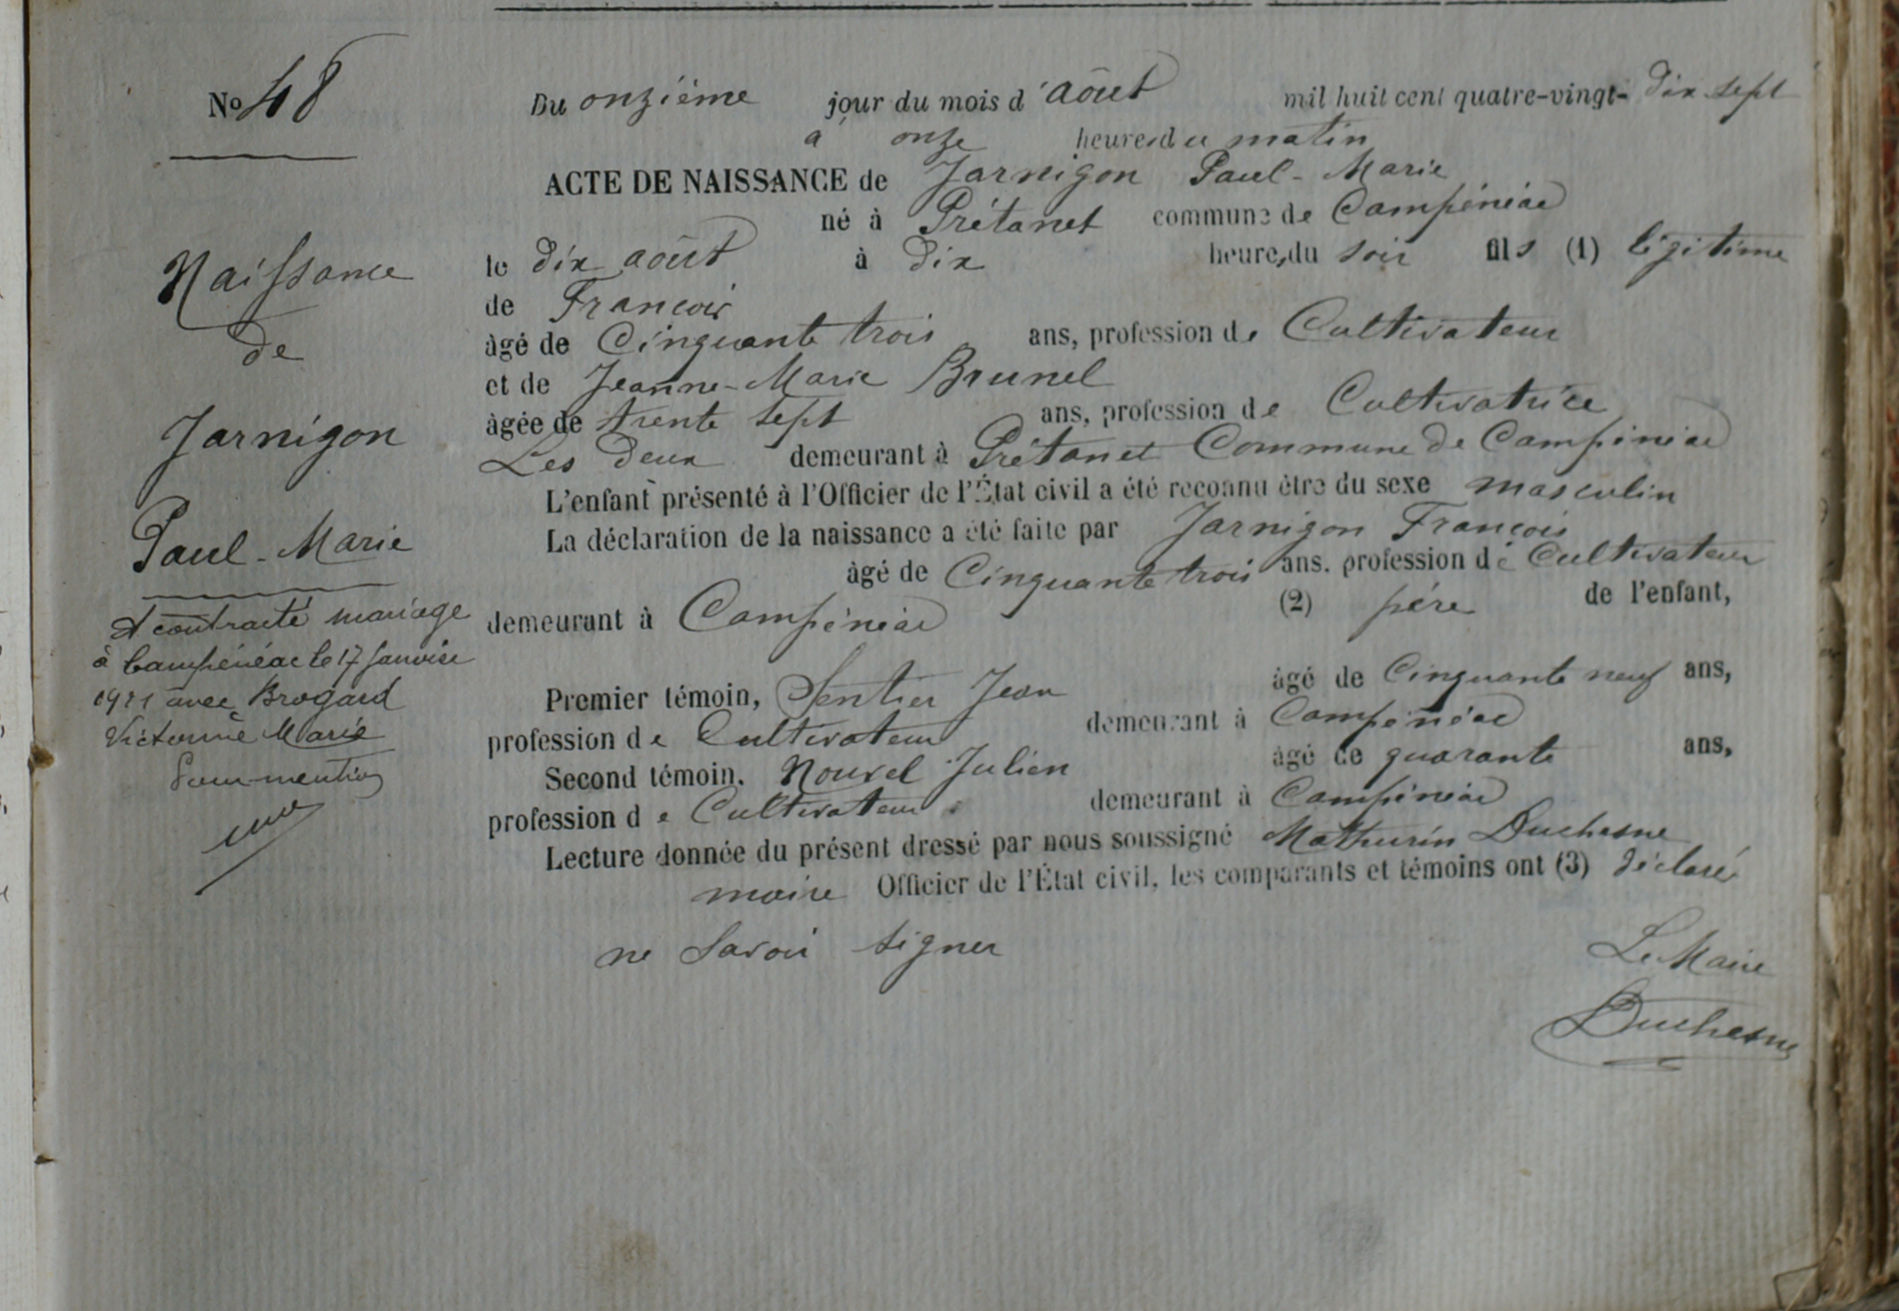 No 48
Naissance
de
Jarnigon
Paul-Marie
A contracté mariage
à Campénéac le 17 Janvier
1921 avec Brogard
Victorine Marie
Pour mention
Du onzième jour du mois d'août mil huit cent quatre-vingt-dix sept
à onze heures du matin
ACTE DE NAISSANCE de Jarnigon Paul-Marie
né à Prétanet commune de Campénéac
le dix août à dix heures du soir fils (1) légitime
de François
âgé de Cinquante trois ans, profession de Cultivateur
et de Jeanne-Marie Brunel
âgée de trente sept ans, profession de Cultivatrice
Les deux demeurant à Prétanet Commune de Campénéac
L'enfant présenté à l'Officier de l'État civil a été reconnu être du sexe masculin
La déclaration de la naissance a été faite par Jarnigon François
âgé de Cinquante trois ans. profession de Cultivateur
demeurant à Campénéac (2) père de l'enfant,
Premier témoin, Sentier Jean âgé de Cinquante neuf ans,
profession de Cultivateur demeurant à Campénéac
Second témoin. Nourel Julien âgé de quarante ans,
profession de Cultivateur demeurant à Campénéac
Lecture donnée du présent dressé par nous soussigné Mathurin Duchesne
maire Officier de l'État civil, les comparants et témoins ont (3) déclaré
ne savoir signer
Le Maire
Duchesne